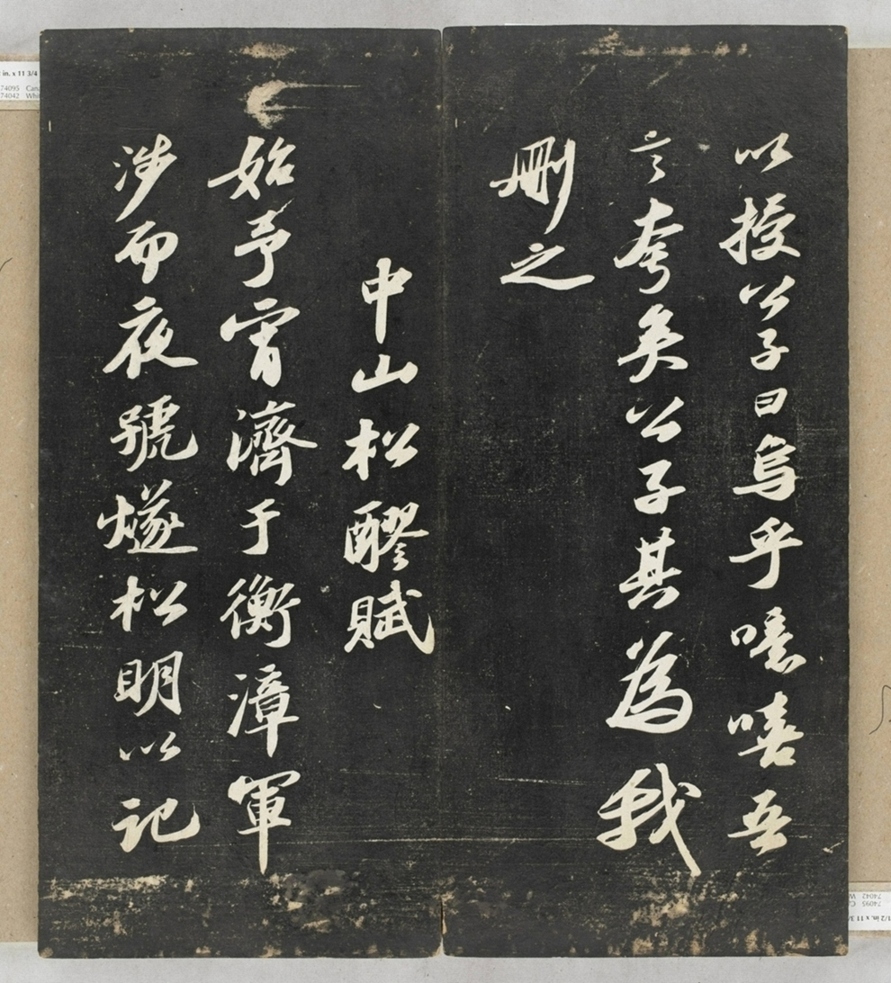 以授公子曰烏乎噫嘻吾
言夸矣公子其為我
刪之
中山松醪賦
始予宵濟于衡漳軍
涉而夜號燧松明以記
in. x 11 3/4
74095 Can
74042 Whi